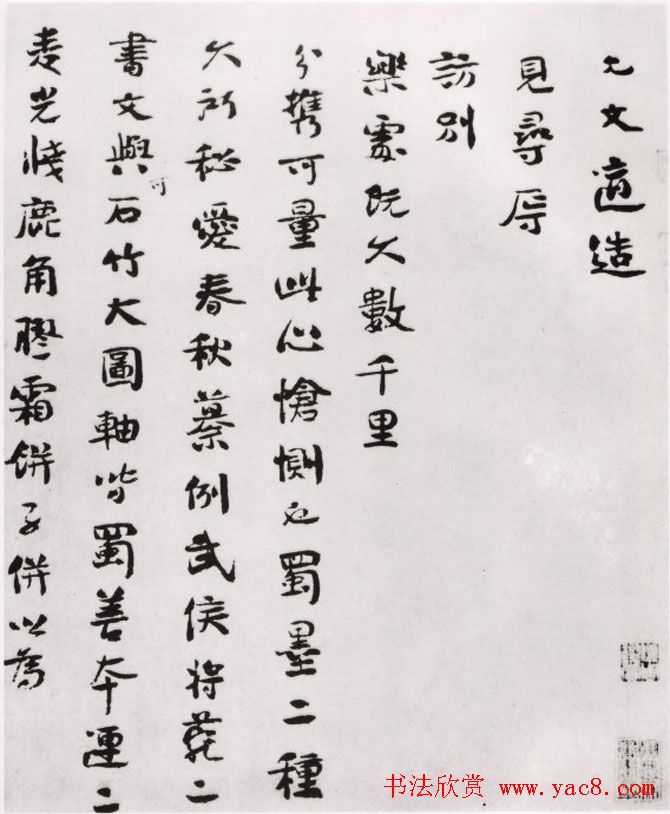 七文適造
見尋辱
訪別
樂處既久數千里
分攜可量此心愴惻也蜀墨二種
久所秘愛春秋纂例武侯將苑二
書文與可石竹大圖軸皆蜀善本運二
麦光牋鹿角膠霜餅子併以為
书法欣赏 www.yac8.com